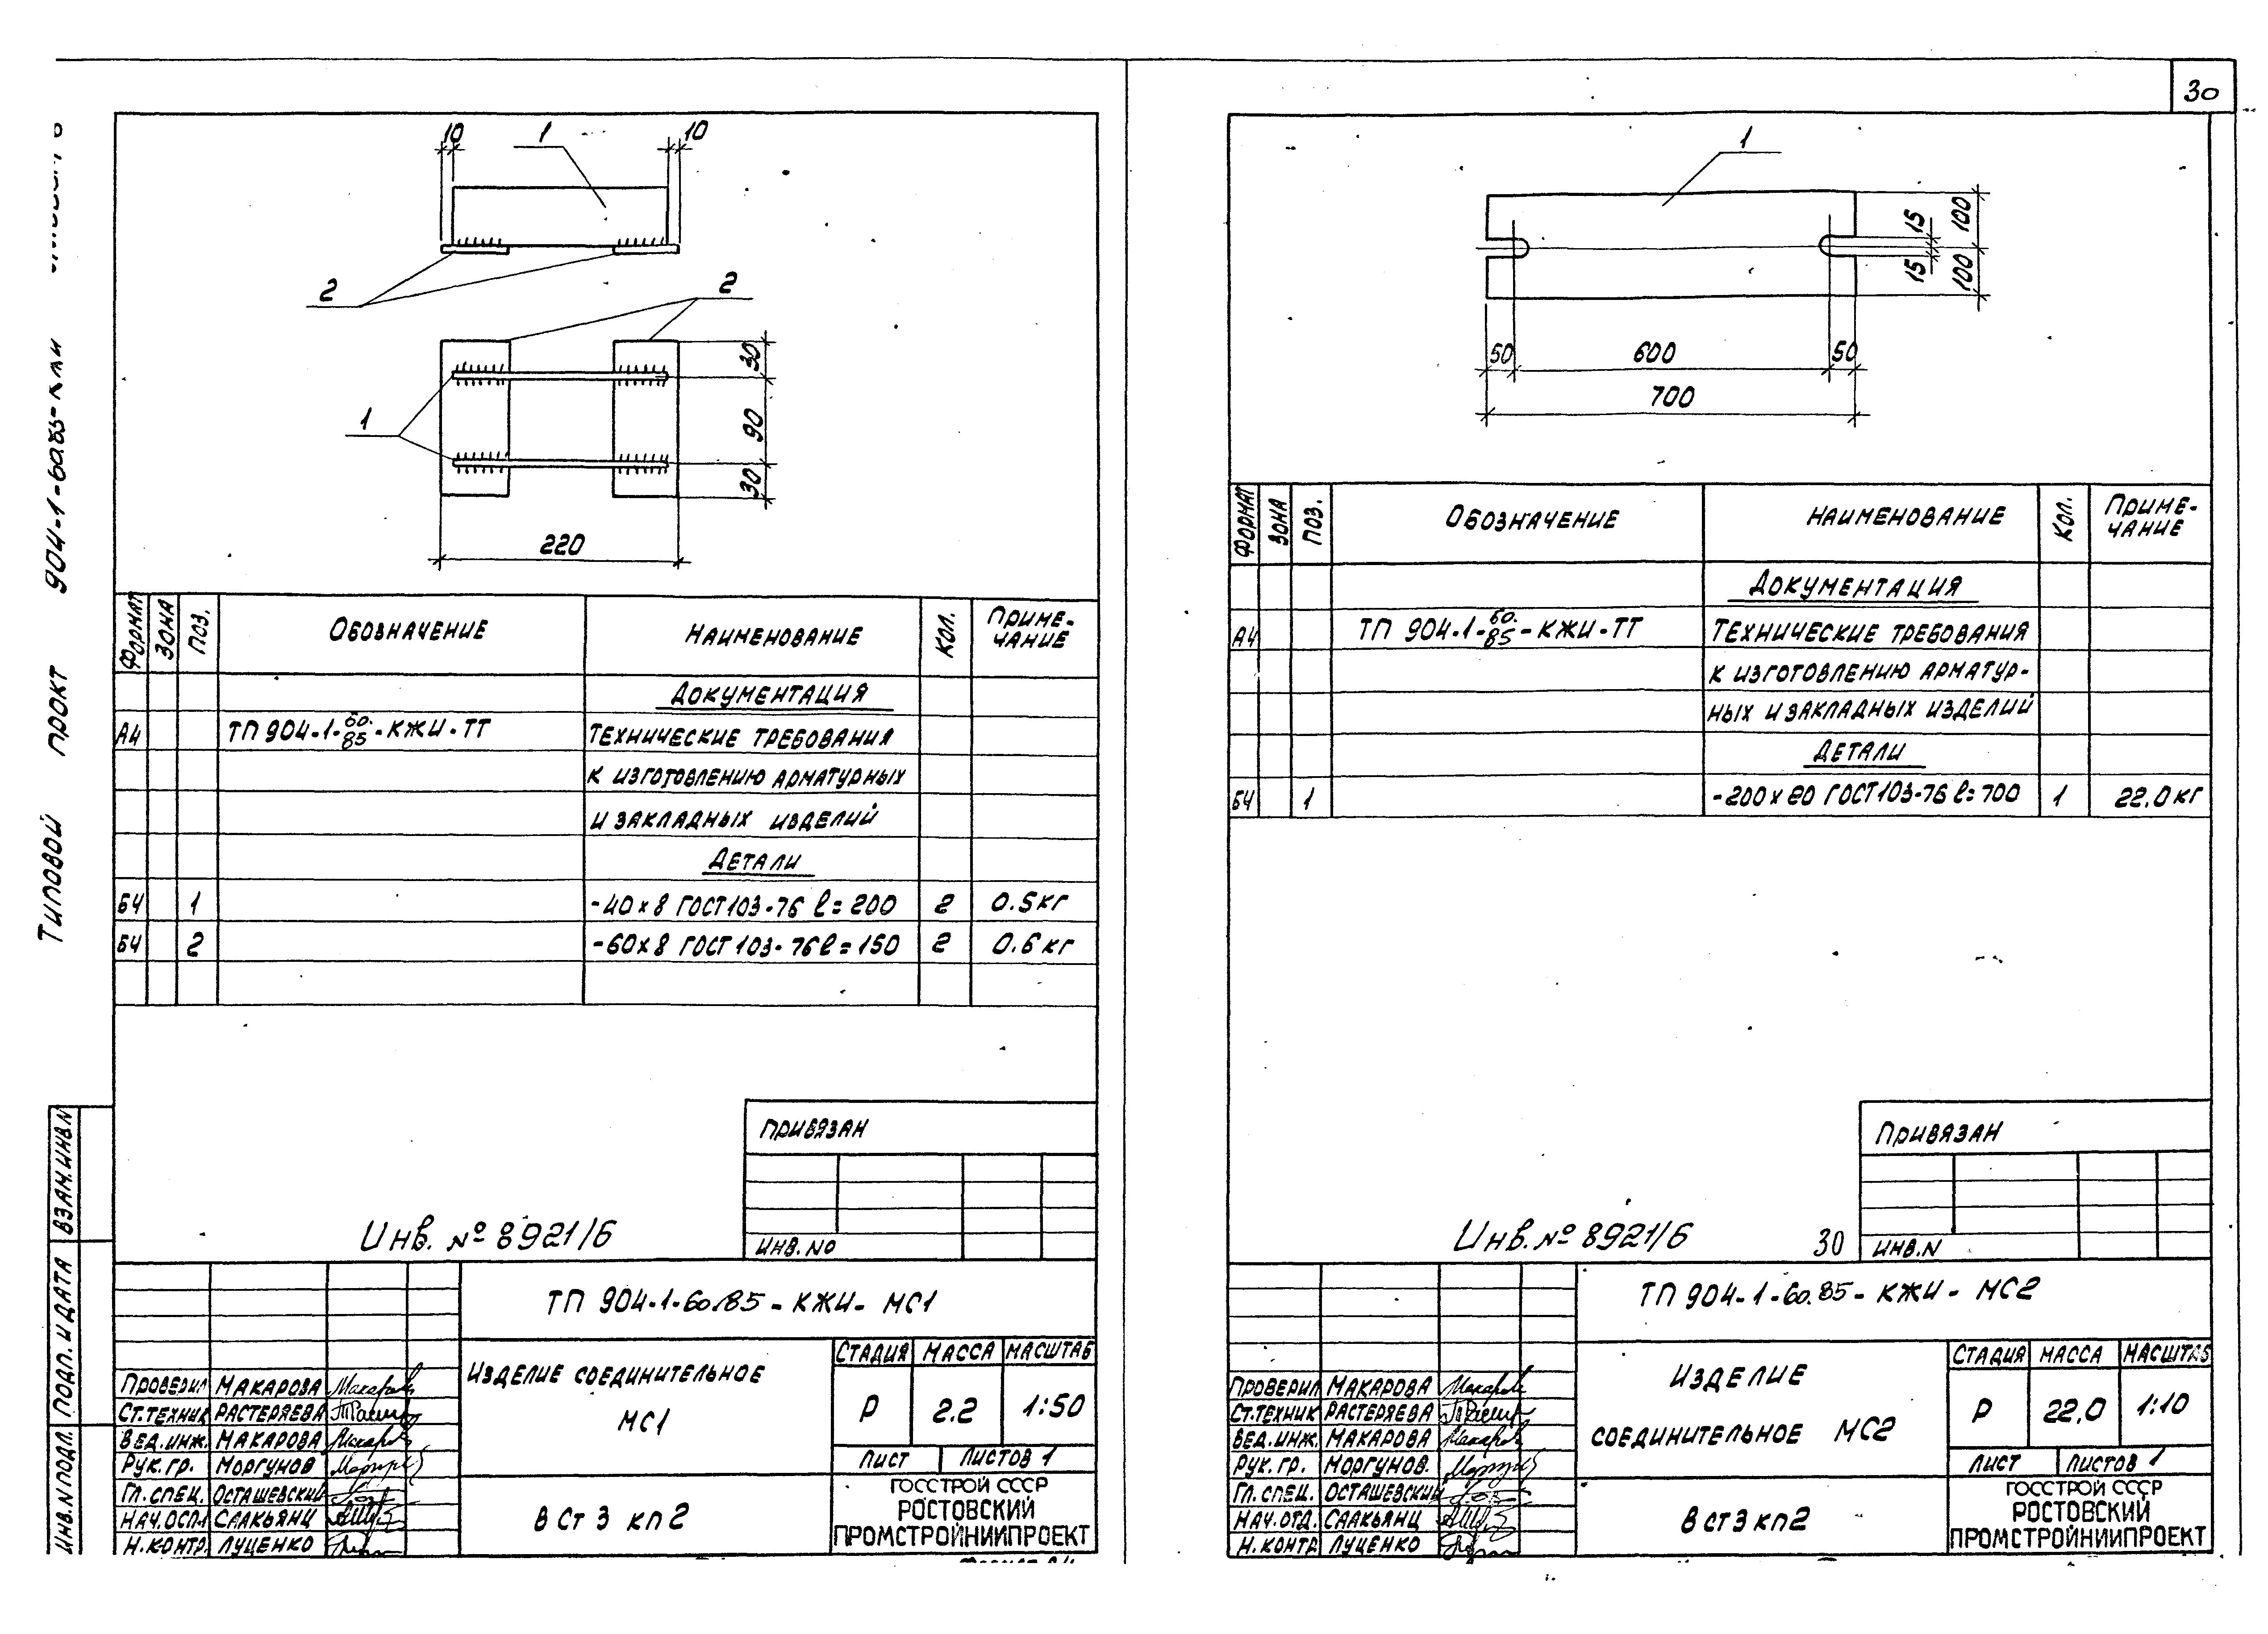 30
Типовой проект 904-1-60.85-КЖИ
10 1 10
2
2
30
1
90
30
220
ФОРМАТ ЗОНА ПОЗ. ОБОЗНАЧЕНИЕ НАИМЕНОВАНИЕ КОЛ. ПРИМЕ-
ЧАНИЕ
ДОКУМЕНТАЦИЯ
А4 ТП 904-1-60.85-КЖИ-ТТ ТЕХНИЧЕСКИЕ ТРЕБОВАНИЯ
К ИЗГОТОВЛЕНИЮ АРМАТУРНЫХ
И ЗАКЛАДНЫХ ИЗДЕЛИЙ
ДЕТАЛИ
БЧ 1 -40×8 ГОСТ 103-76 ℓ=200 2 0.5 кг
БЧ 2 -60×8 ГОСТ 103-76 ℓ=150 2 0.6 кг
ПРИВЯЗАН
ИНВ. NO
Инв. № 8921/6
ВЗАМ.ИНВ.N
ПОДП. И ДАТА
ИНВ.N ПОДЛ.
ТП 904-1-60.85-КЖИ-МС1
ИЗДЕЛИЕ СОЕДИНИТЕЛЬНОЕ
МС1
СТАДИЯ МАССА МАСШТАБ
Р 2.2 1:50
ЛИСТ ЛИСТОВ 1
ПРОВЕРИЛ МАКАРОВА
СТ.ТЕХНИК РАСТЕРЯЕВА
ВЕД.ИНЖ. МАКАРОВА
РУК.ГР. МОРГУНОВ
ГЛ.СПЕЦ. ОСТАШЕВСКИЙ
НАЧ.ОСП.1 СААКЬЯНЦ
Н.КОНТР. ЛУЦЕНКО
В Ст 3 кп 2
ГОССТРОЙ СССР
РОСТОВСКИЙ
ПРОМСТРОЙНИИПРОЕКТ
1
15 100
15 100
50 600 50
700
ФОРМАТ ЗОНА ПОЗ. ОБОЗНАЧЕНИЕ НАИМЕНОВАНИЕ КОЛ. ПРИМЕ-
ЧАНИЕ
ДОКУМЕНТАЦИЯ
А4 ТП 904-1-60.85-КЖИ-ТТ ТЕХНИЧЕСКИЕ ТРЕБОВАНИЯ
К ИЗГОТОВЛЕНИЮ АРМАТУР-
НЫХ И ЗАКЛАДНЫХ ИЗДЕЛИЙ
ДЕТАЛИ
БЧ 1 -200×20 ГОСТ 103-76 ℓ=700 1 22.0 кг
ПРИВЯЗАН
Инв. № 8921/6 30 ИНВ.N
ТП 904-1-60.85-КЖИ-МС2
ИЗДЕЛИЕ
СОЕДИНИТЕЛЬНОЕ МС2
СТАДИЯ МАССА МАСШТАБ
Р 22.0 1:10
ЛИСТ ЛИСТОВ 1
ПРОВЕРИЛ МАКАРОВА
СТ.ТЕХНИК РАСТЕРЯЕВА
ВЕД.ИНЖ. МАКАРОВА
РУК.ГР. МОРГУНОВ.
ГЛ.СПЕЦ. ОСТАШЕВСКИЙ
НАЧ.ОТД. СААКЬЯНЦ
Н.КОНТР ЛУЦЕНКО
В Ст 3 кп 2
ГОССТРОЙ СССР
РОСТОВСКИЙ
ПРОМСТРОЙНИИПРОЕКТ